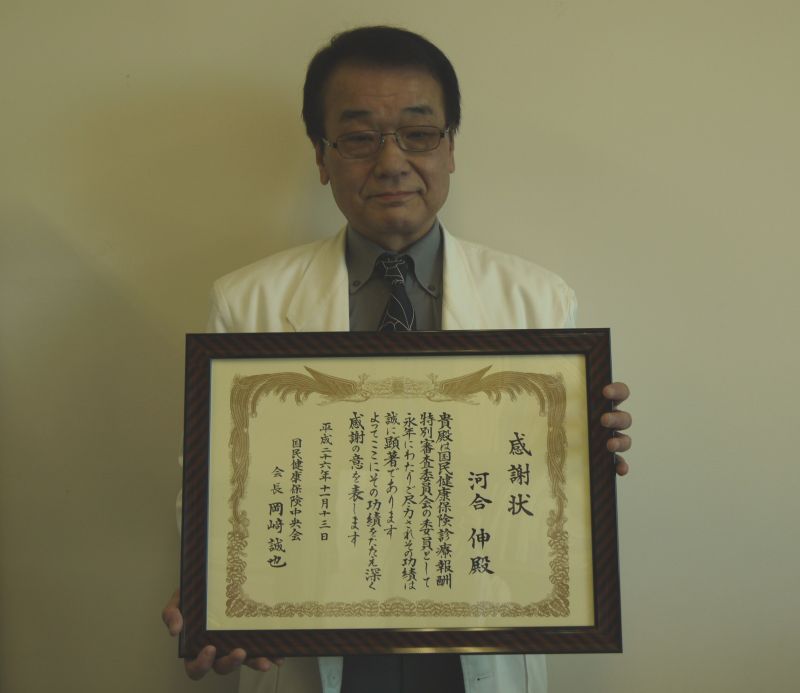 感謝状
河合 伸殿
貴殿は国民健康保険診療報酬
特別審査委員会の委員として
永年にわたりご尽力されその功績は
誠に顕著であります
よってここにその功績をたたえ深く
感謝の意を表します
平成二十六年十一月十三日
国民健康保険中央会
会長 岡﨑誠也